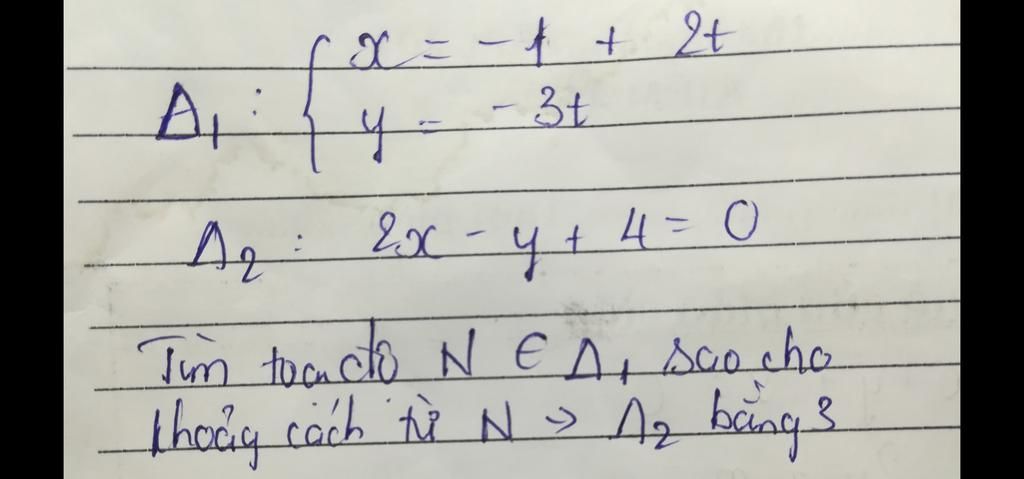 Δ₁ : { x = -1 + 2t
y = -3t
Δ₂ : 2x - y + 4 = 0
Tìm toạ độ N ∈ Δ₁ sao cho
khoảg cách từ N → Δ₂ bằng 3